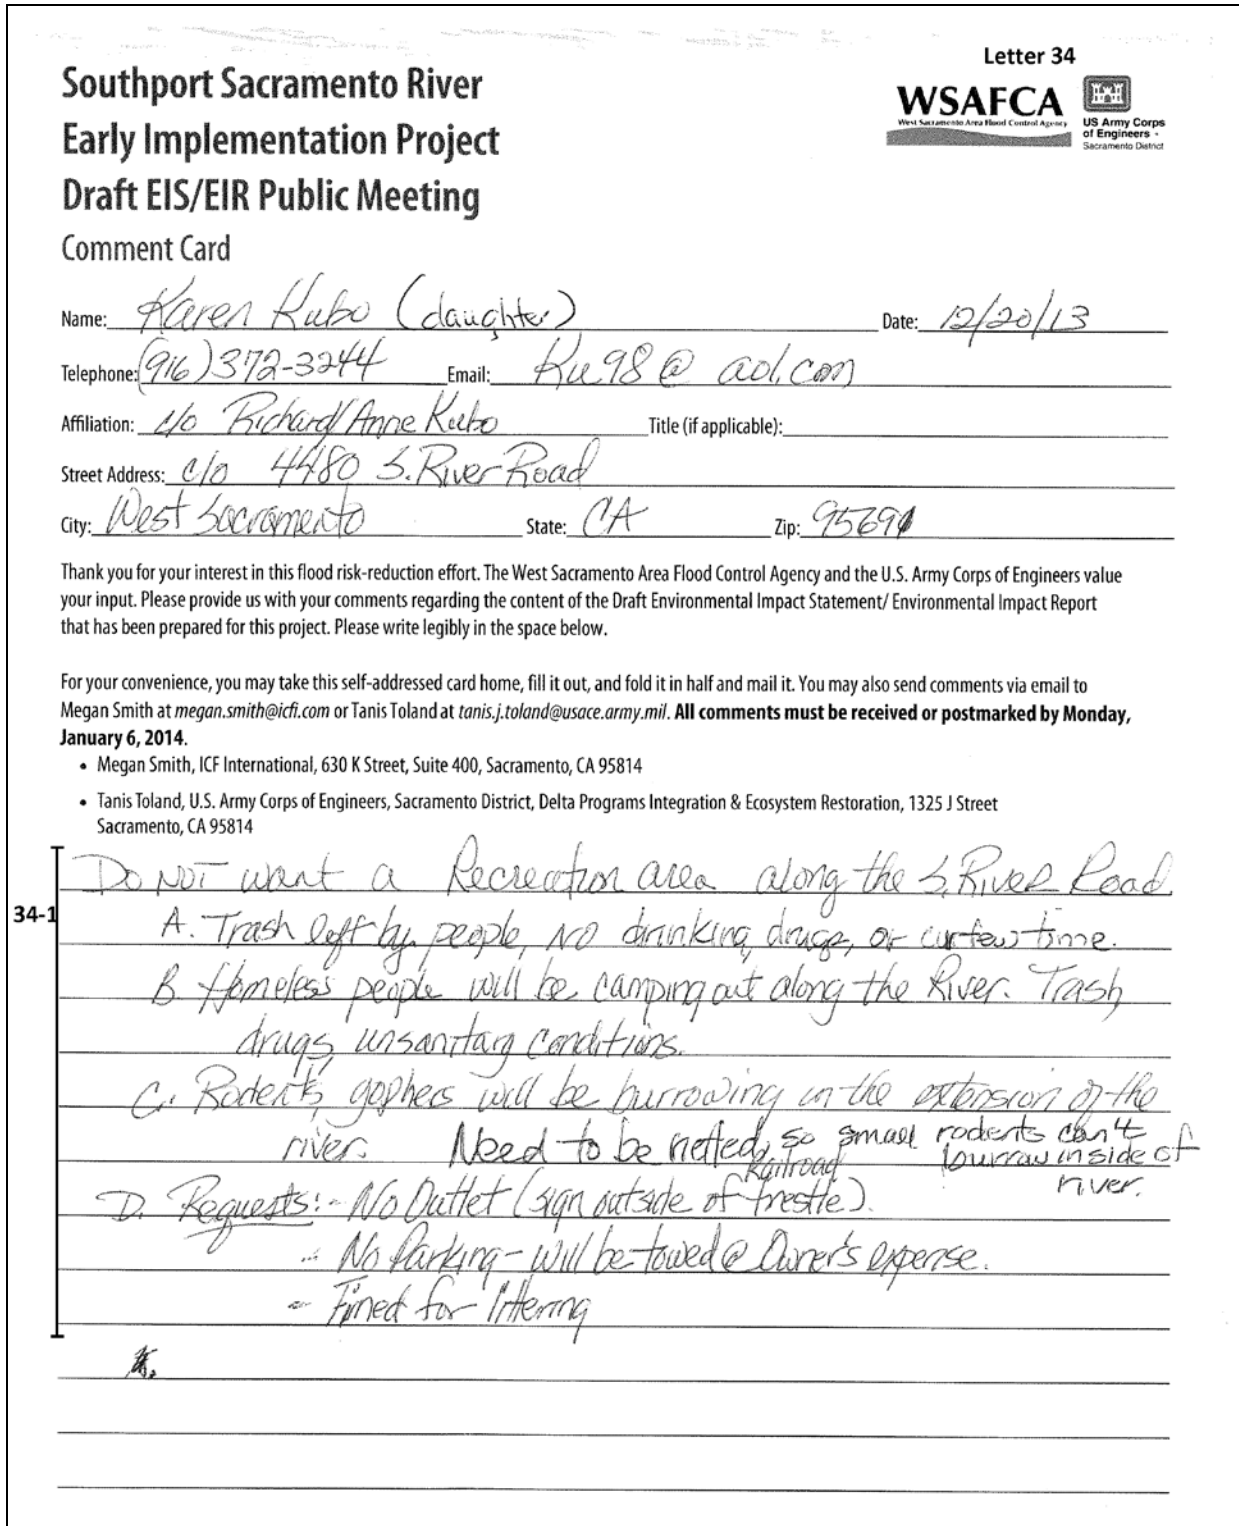 Letter 34
Southport Sacramento River
Early Implementation Project
Draft EIS/EIR Public Meeting
Comment Card
WSAFCA
West Sacramento Area Flood Control Agency
US Army Corps
of Engineers
Sacramento District
Name: Karen Kubo (daughter) Date: 12/20/13
Telephone: (916) 372-3244 Email: Ku98@aol.com
Affiliation: c/o Richard/Anne Kubo Title (if applicable):
Street Address: c/o 4480 S. River Road
City: West Sacramento State: CA Zip: 95691
Thank you for your interest in this flood risk-reduction effort. The West Sacramento Area Flood Control Agency and the U.S. Army Corps of Engineers value
your input. Please provide us with your comments regarding the content of the Draft Environmental Impact Statement/ Environmental Impact Report
that has been prepared for this project. Please write legibly in the space below.
For your convenience, you may take this self-addressed card home, fill it out, and fold it in half and mail it. You may also send comments via email to
Megan Smith at megan.smith@icfi.com or Tanis Toland at tanis.j.toland@usace.army.mil. All comments must be received or postmarked by Monday,
January 6, 2014.
• Megan Smith, ICF International, 630 K Street, Suite 400, Sacramento, CA 95814
• Tanis Toland, U.S. Army Corps of Engineers, Sacramento District, Delta Programs Integration & Ecosystem Restoration, 1325 J Street
Sacramento, CA 95814
Do NOT want a Recreation area along the S. River Road.
34-1
A. Trash left by people, NO drinking, drugs, or curfew time.
B Homeless people will be camping out along the River. Trash,
drugs, unsanitary conditions.
C. Rodents, gophers will be burrowing in the extension of the
river. Need to be netted, so small rodents can't
burrow inside of
river.
D. Requests: - No Outlet (sign outside of Railroad trestle).
- No Parking - will be towed @ Owner's expense.
- Fined for littering